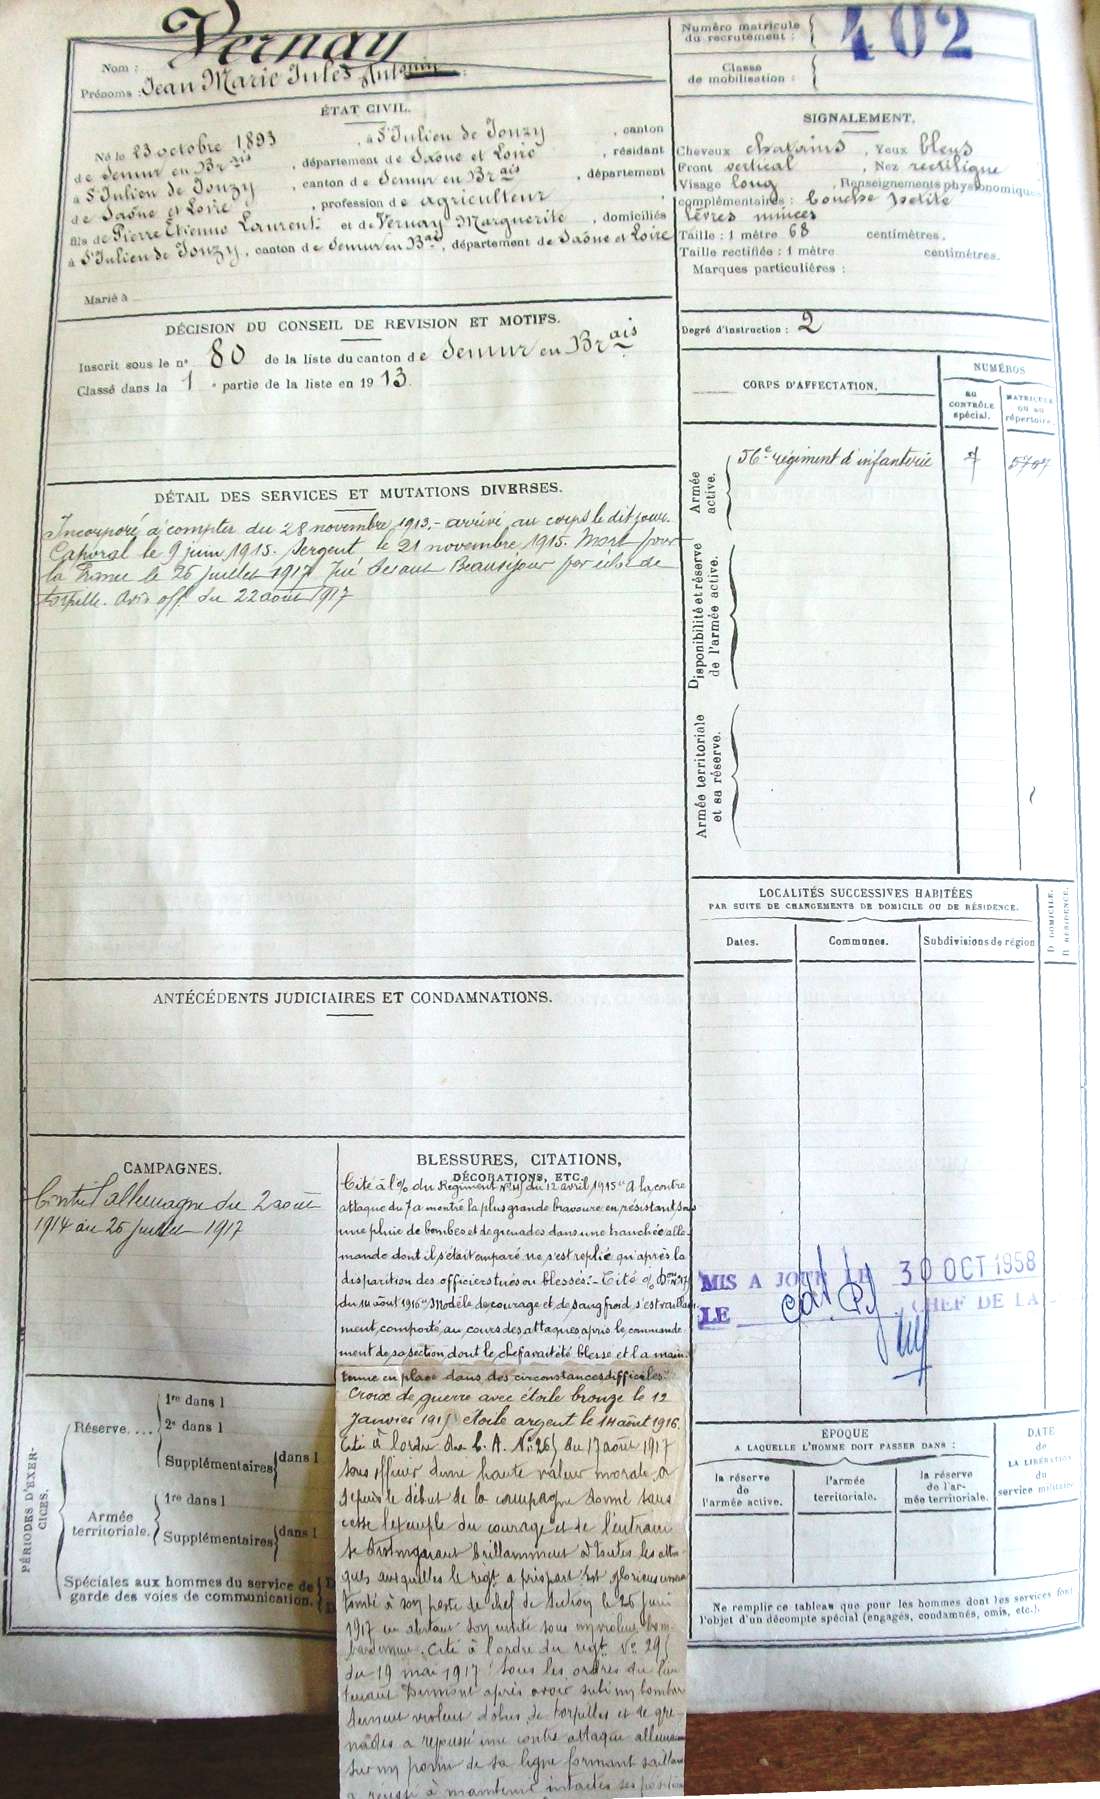 Nom : Vernay
Prénoms : Jean Marie Jules Antonin
Numéro matricule du recrutement : 402
Classe de mobilisation :
ÉTAT CIVIL.
Né le 23 octobre 1893, à St Julien de Jonzy, canton
de Semur en Brais, département de Saône et Loire, résidant
à St Julien de Jonzy, canton de Semur en Brais, département
de Saône et Loire, profession de agriculteur
fils de Pierre Etienne Laurent et de Vernay Marguerite, domiciliés
à St Julien de Jonzy, canton de Semur en Brais, département de Saône et Loire
Marié à
SIGNALEMENT.
Cheveux chatains, Yeux bleus
Front vertical, Nez rectiligne
Visage long, Renseignements physionomiques
complémentaires : bouche petite
lèvres minces
Taille : 1 mètre 68 centimètres.
Taille rectifiée : 1 mètre centimètres.
Marques particulières :
Degré d'instruction : 2
DÉCISION DU CONSEIL DE REVISION ET MOTIFS.
Inscrit sous le no 80 de la liste du canton de Semur en Brais
Classé dans la 1e partie de la liste en 1913.
DÉTAIL DES SERVICES ET MUTATIONS DIVERSES.
Incorporé à compter du 28 novembre 1913.- arrivé au corps le dit jour.
Caporal le 9 juin 1915. Sergent le 21 novembre 1915. Mort pour
la France le 26 juillet 1917. Tué devant Beauséjour par éclat de
torpille. Avis off. du 22 août 1917
CORPS D'AFFECTATION.
NUMÉROS
AU CONTRÔLE spécial.
MATRICULE OU AU répertoire.
Armée active.
56e régiment d'infanterie 7
Disponibilité et réserve de l'armée active.
Armée territoriale et sa réserve.
LOCALITÉS SUCCESSIVES HABITÉES
PAR SUITE DE CHANGEMENTS DE DOMICILE OU DE RÉSIDENCE.
Dates. Communes. Subdivisions de région
D DOMICILE. R RÉSIDENCE.
ANTÉCÉDENTS JUDICIAIRES ET CONDAMNATIONS.
CAMPAGNES.
Contre l'allemagne du 2 août
1914 au 26 juillet 1917
BLESSURES, CITATIONS,
DÉCORATIONS, ETC.
Cité à l'o/ du Régiment du 12 avril 1915 "A la contre
attaque du 7 a montré la plus grande bravoure en résistant sous
une pluie de bombes et de grenades dans une tranchée alle-
mande dont il s'était emparé ne s'est replié qu'après la
disparition des officiers tués ou blessés.- Cité o/
du 14 août 1916 "Modèle de courage et de sang froid s'est vaillam-
ment comporté au cours des attaques après le commande
ment de sa section dont le chef avait été blessé et l'a main-
tenue en place dans des circonstances difficiles."
Croix de guerre avec étoile bronze le 12
Janvier 1915 étoile argent le 14 août 1916.
Cité à l'ordre du C. A. No 265 du 17 août 1917
Sous officier d'une haute valeur morale, a
depuis le début de la campagne donné sans
cesse l'exemple du courage et de l'entrain
se distinguant brillamment à toutes les atta-
ques auxquelles le regt a pris part. Est glorieusement
tombé à son poste de chef de section le 26 juin
1917 en alertant son unité sous un violent bom-
bardement. Cité à l'ordre du regt No 295
du 19 mai 1917 : Sous les ordres du lieu
tenant après avoir subi un bombar
dement violent d'obus de torpilles et de gre-
nades a repoussé une contre attaque allemande
sur un point de sa ligne formant saillant
a réussi à maintenir intactes ses positions
MIS A JOUR LE 30 OCT 1958
LE CHEF DE LA
PÉRIODES D'EXERCICES.
Réserve....
1re dans l
2e dans l
Supplémentaires dans l
Armée territoriale.
1re dans l
Supplémentaires dans l
Spéciales aux hommes du service de
garde des voies de communication.
ÉPOQUE
A LAQUELLE L'HOMME DOIT PASSER DANS :
la réserve de l'armée active.
l'armée territoriale.
la réserve de l'armée territoriale.
DATE de LA LIBÉRATION du service militaire
Ne remplir ce tableau que pour les hommes dont les services font
l'objet d'un décompte spécial (engagés, condamnés, omis, etc.).